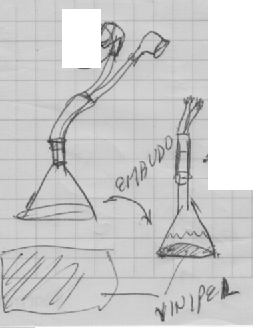 EMBUDO
VINIPEL